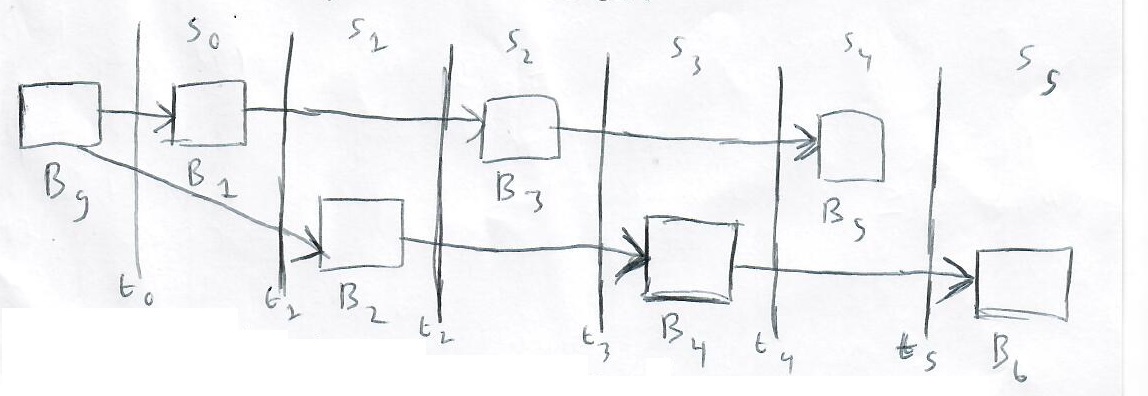 S0 S1 S2 S3 S4 S5
Bg B1 B3 B5
B2 B4 B6
t0 t1 t2 t3 t4 t5